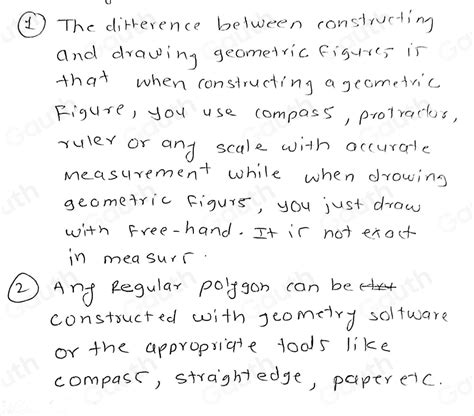 ① The difference between constructing
and drawing geometric figures is
that when constructing a geometric
Figure, you use compass, protractors,
ruler or any scale with accurate
measurement while when drawing
geometric figurs, you just draw
with free-hand. It is not exact
in measurs.
② Any Regular polygon can be
constructed with geometry software
or the appropriate tools like
compass, straightedge, paper etc.